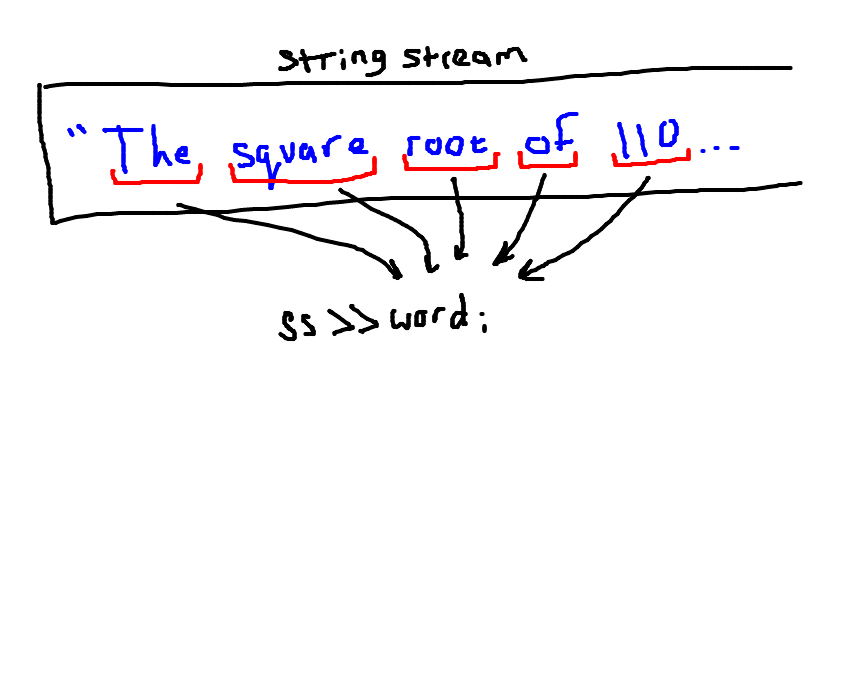 string stream
"The square root of 110...
ss>>word;